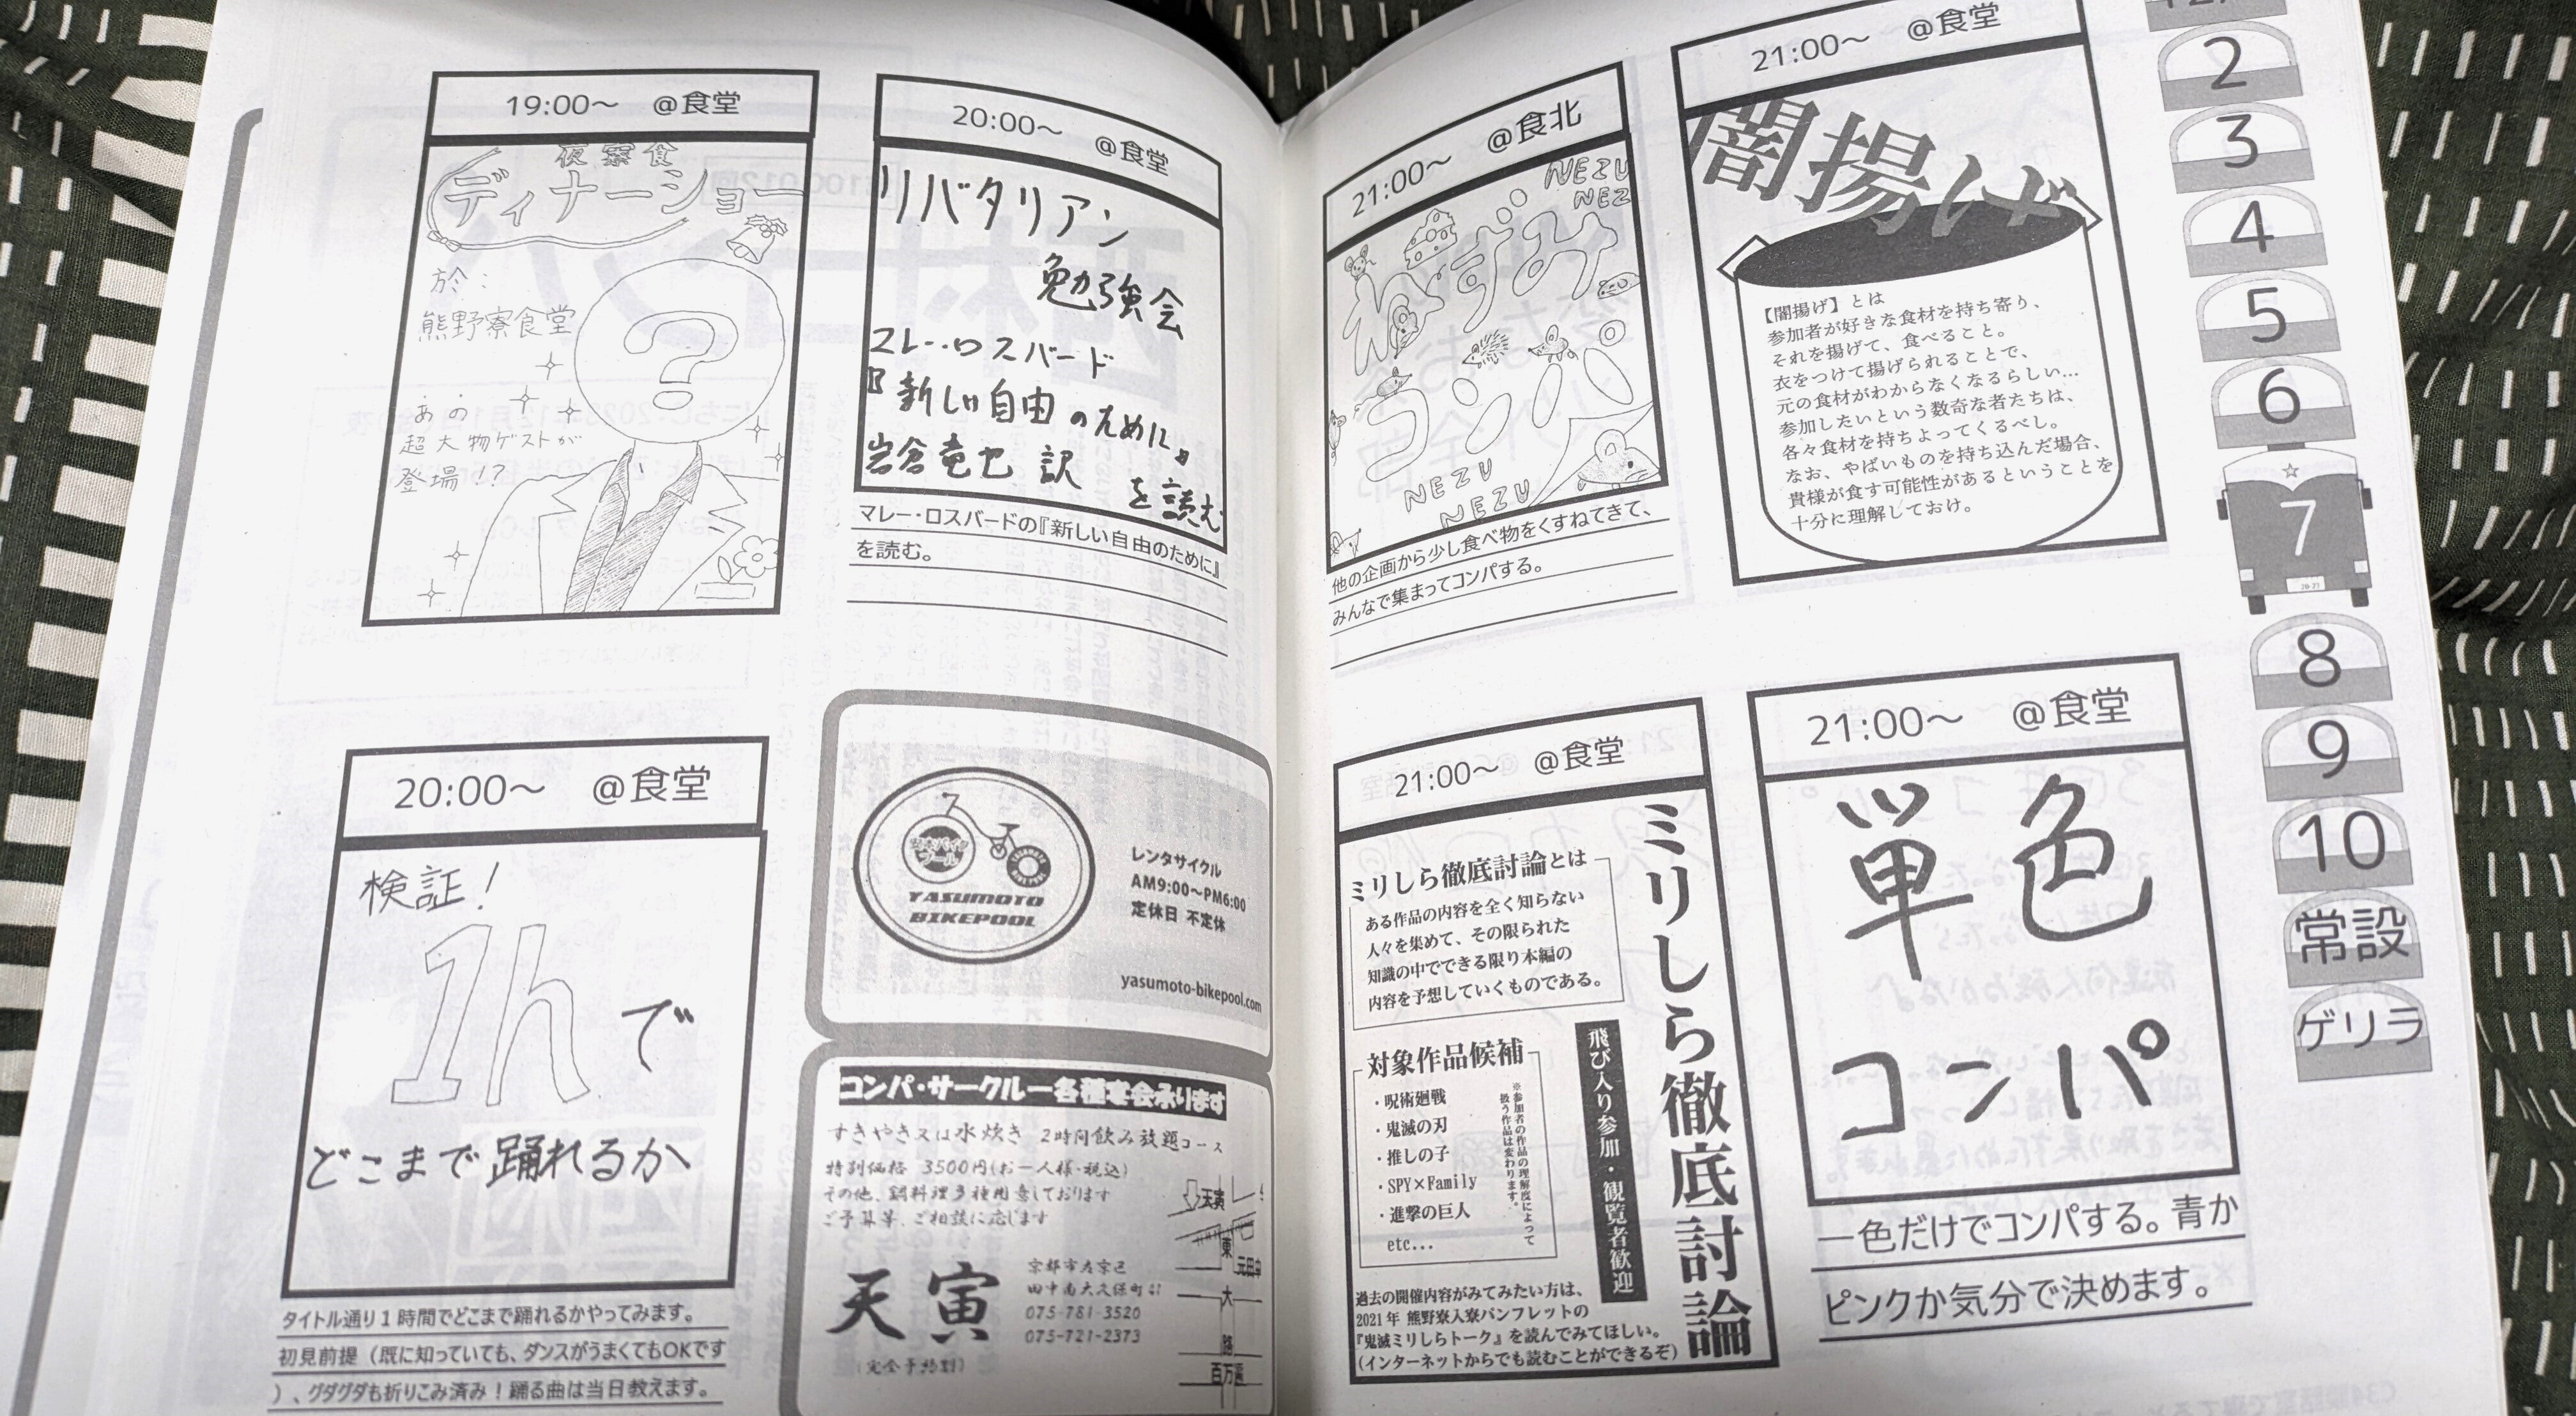 19:00〜 @食堂
夜寮食
ディナーショー
於:
熊野寮食堂
?
あの
超大物ゲストが
登場!?
20:00〜 @食堂
リバタリアン
勉強会
マレー・ロスバード
『新しい自由のために』
岩倉竜也 訳
を読む
マレー・ロスバードの『新しい自由のために』
を読む。
20:00〜 @食堂
検証!
1hで
どこまで踊れるか
タイトル通り1時間でどこまで踊れるかやってみます。
初見前提(既に知っていても、ダンスがうまくてもOKです
)、グダグダも折りこみ済み!踊る曲は当日教えます。
YASUMOTO
BIKEPOOL
レンタサイクル
AM9:00〜PM6:00
定休日 不定休
yasumoto-bikepool.com
コンパ・サークルー各種宴会承ります
すきやき又は水炊き 2時間飲み放題コース
特別価格 3500円(お一人様・税込)
その他、鍋料理多種用意しております
ご予算等、ご相談に応じます
天寅
(完全予約制)
京都市左京区
田中南大久保町
075-781-3520
075-721-2373
天寅
東
大
路
百万遍
21:00〜 @食北
NEZU
NEZ
ねずみ
コンパ
NEZU
NEZU
他の企画から少し食べ物をくすねてきて、
みんなで集まってコンパする。
21:00〜 @食堂
闇揚げ
【闇揚げ】とは
参加者が好きな食材を持ち寄り、
それを揚げて、食べること。
衣をつけて揚げられることで、
元の食材がわからなくなるらしい…
参加したいという数奇な者たちは、
各々食材を持ちよってくるべし。
なお、やばいものを持ち込んだ場合、
貴様が食す可能性があるということを
十分に理解しておけ。
21:00〜 @食堂
ミリしら徹底討論
ミリしら徹底討論とは
ある作品の内容を全く知らない
人々を集めて、その限られた
知識の中でできる限り本編の
内容を予想していくものである。
飛び入り参加・観覧者歓迎
対象作品候補
・呪術廻戦
・鬼滅の刃
・推しの子
・SPY×Family
・進撃の巨人
etc...
※参加者の作品の理解度によって
扱う作品は変わります。
過去の開催内容がみてみたい方は、
2021年 熊野寮入寮パンフレットの
『鬼滅ミリしらトーク』を読んでみてほしい。
(インターネットからでも読むことができるぞ)
21:00〜 @食堂
単色
コンパ
一色だけでコンパする。青か
ピンクか気分で決めます。
2
3
4
5
6
7
8
9
10
常設
ゲリラ